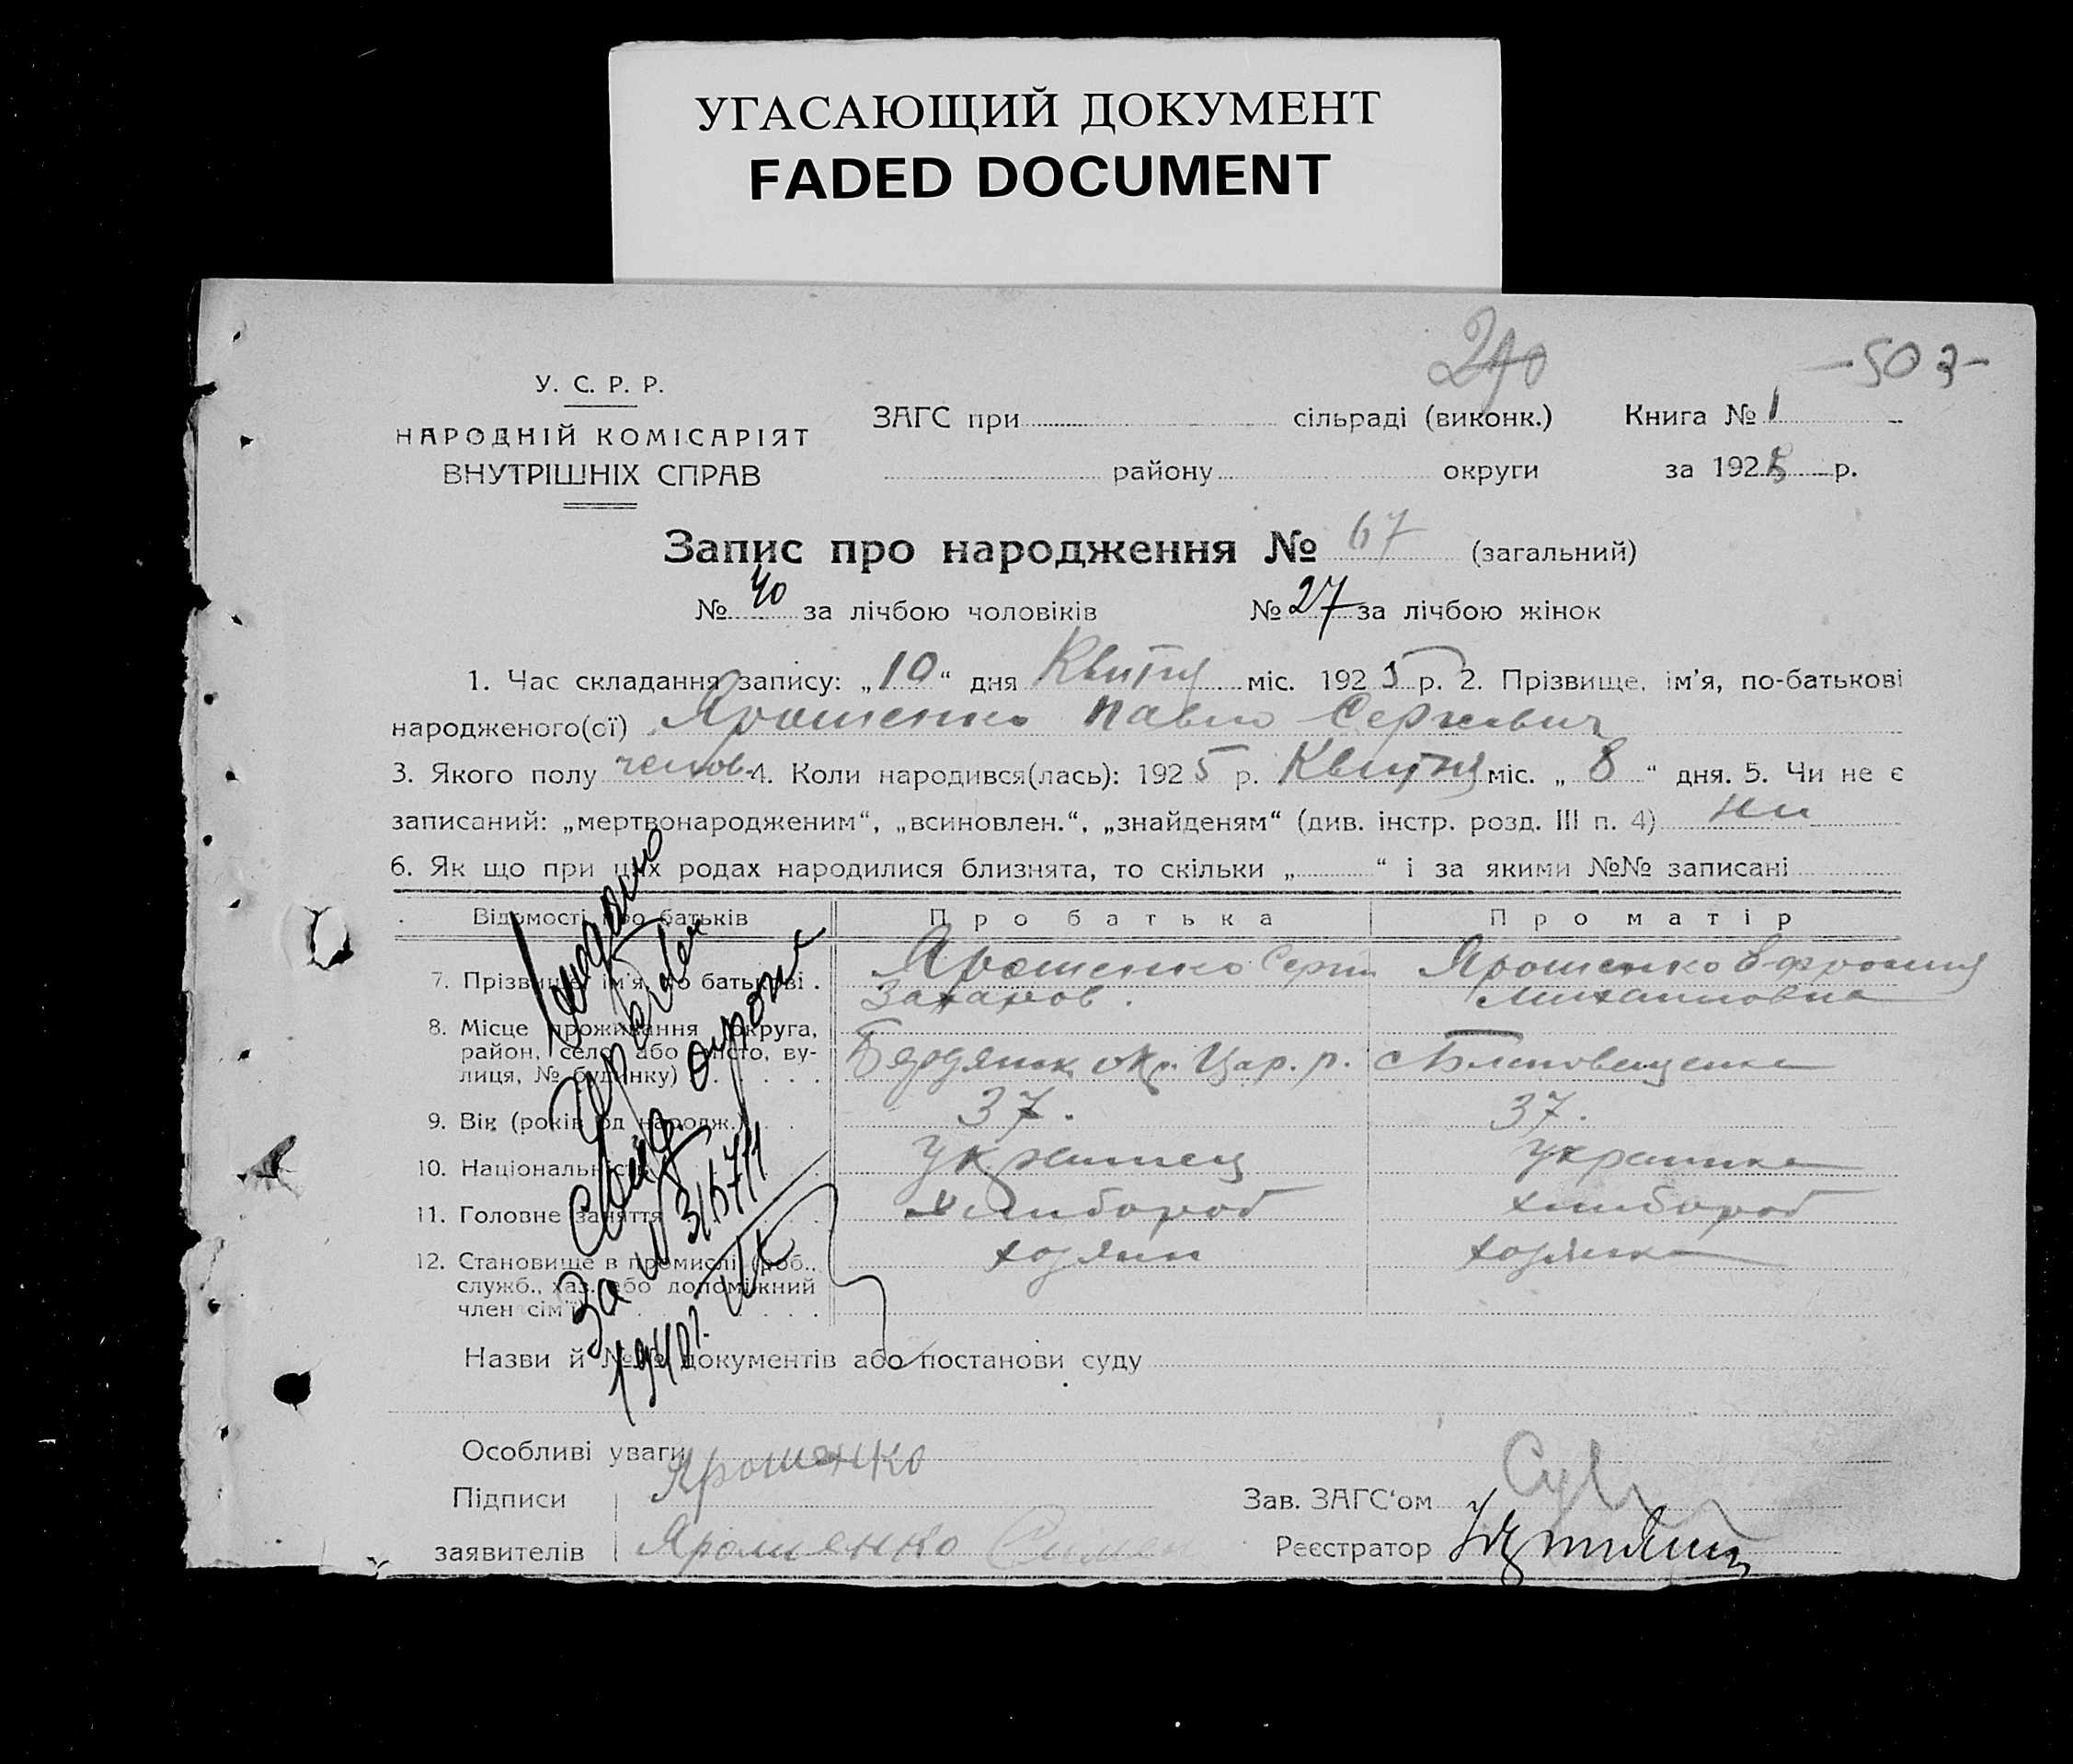 УГАСАЮЩИЙ ДОКУМЕНТ
FADED DOCUMENT
290
-503-
У. С. Р. Р.
НАРОДНІЙ КОМІСАРІЯТ
ВНУТРІШНІХ СПРАВ
ЗАГС при сільраді (виконк.)
району округи
Книга № 1
за 1925 р.
Запис про народження № 67 (загальний)
№ 40 за лічбою чоловіків № 27 за лічбою жінок
1. Час складання запису: „10“ дня Квитня міс. 1925 р. 2. Прізвище, ім'я, по-батькові
народженого(ої) Ярошенко Павло Сергиевич
3. Якого полу челов. 4. Коли народився(лась): 1925 р. Квитня міс. „8“ дня. 5. Чи не є
записаний: „мертвонародженим“, „всиновлен.“, „знайденям“ (див. інстр. розд. III п. 4) ни
6. Як що при цих родах народилися близнята, то скільки „ “ і за якими №№ записані
Відомості про батьків Про батька Про матір
7. Прізвище, ім'я, по батькові . Ярошенко Серги Ярошенко Эфросиния
Захаров. Михаиловна
8. Місце проживання (округа,
район, село або місто, ву-
лиця, № будинку) Бердянск окр. Цар. р. с Благовещенка
9. Вік (років од народж.) 37. 37.
10. Національність Украинец Украинка
11. Головне заняття хлибороб хлибороб
12. Становище в промислі (роб.,
служб., хаз. або допоміжний
член сім'ї) хозяин хозяика
Выдано
повторное
свид.
За № 3/6711
1940 г.
Назви й №№ документів або постанови суду
Особливі уваги
Підписи Ярошенко
заявителів Ярошенко Симен
Зав. ЗАГС'ом
Реєстратор